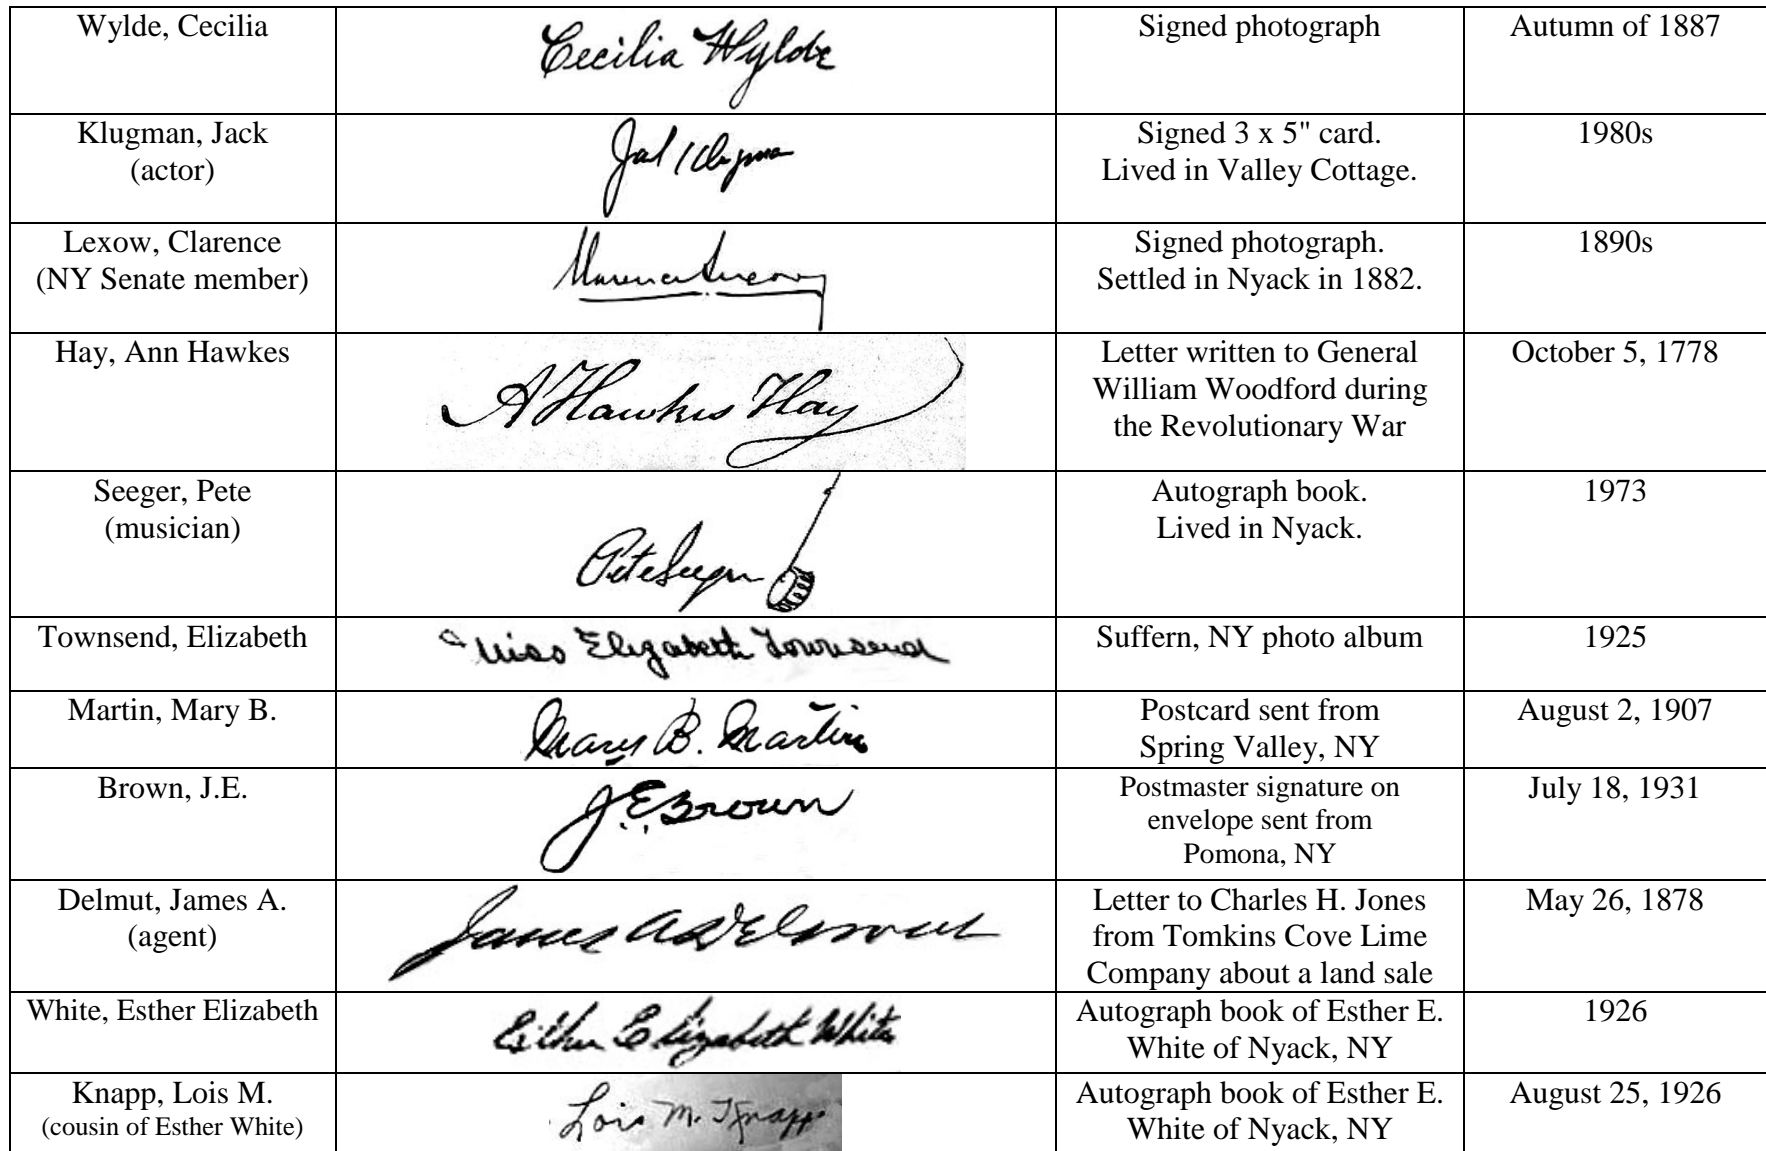 Wylde, Cecilia
Cecilia Wylde
Signed photograph
Autumn of 1887
Klugman, Jack
(actor)
Signed 3 x 5" card.
Lived in Valley Cottage.
1980s
Lexow, Clarence
(NY Senate member)
Signed photograph.
Settled in Nyack in 1882.
1890s
Hay, Ann Hawkes
A Hawkes Hay
Letter written to General
William Woodford during
the Revolutionary War
October 5, 1778
Seeger, Pete
(musician)
Pete Seeger
Autograph book.
Lived in Nyack.
1973
Townsend, Elizabeth
Miss Elizabeth Townsend
Suffern, NY photo album
1925
Martin, Mary B.
Mary B. Martin
Postcard sent from
Spring Valley, NY
August 2, 1907
Brown, J.E.
J.E. Brown
Postmaster signature on
envelope sent from
Pomona, NY
July 18, 1931
Delmut, James A.
(agent)
James A Delmut
Letter to Charles H. Jones
from Tomkins Cove Lime
Company about a land sale
May 26, 1878
White, Esther Elizabeth
Esther Elizabeth White
Autograph book of Esther E.
White of Nyack, NY
1926
Knapp, Lois M.
(cousin of Esther White)
Lois M. Knapp
Autograph book of Esther E.
White of Nyack, NY
August 25, 1926